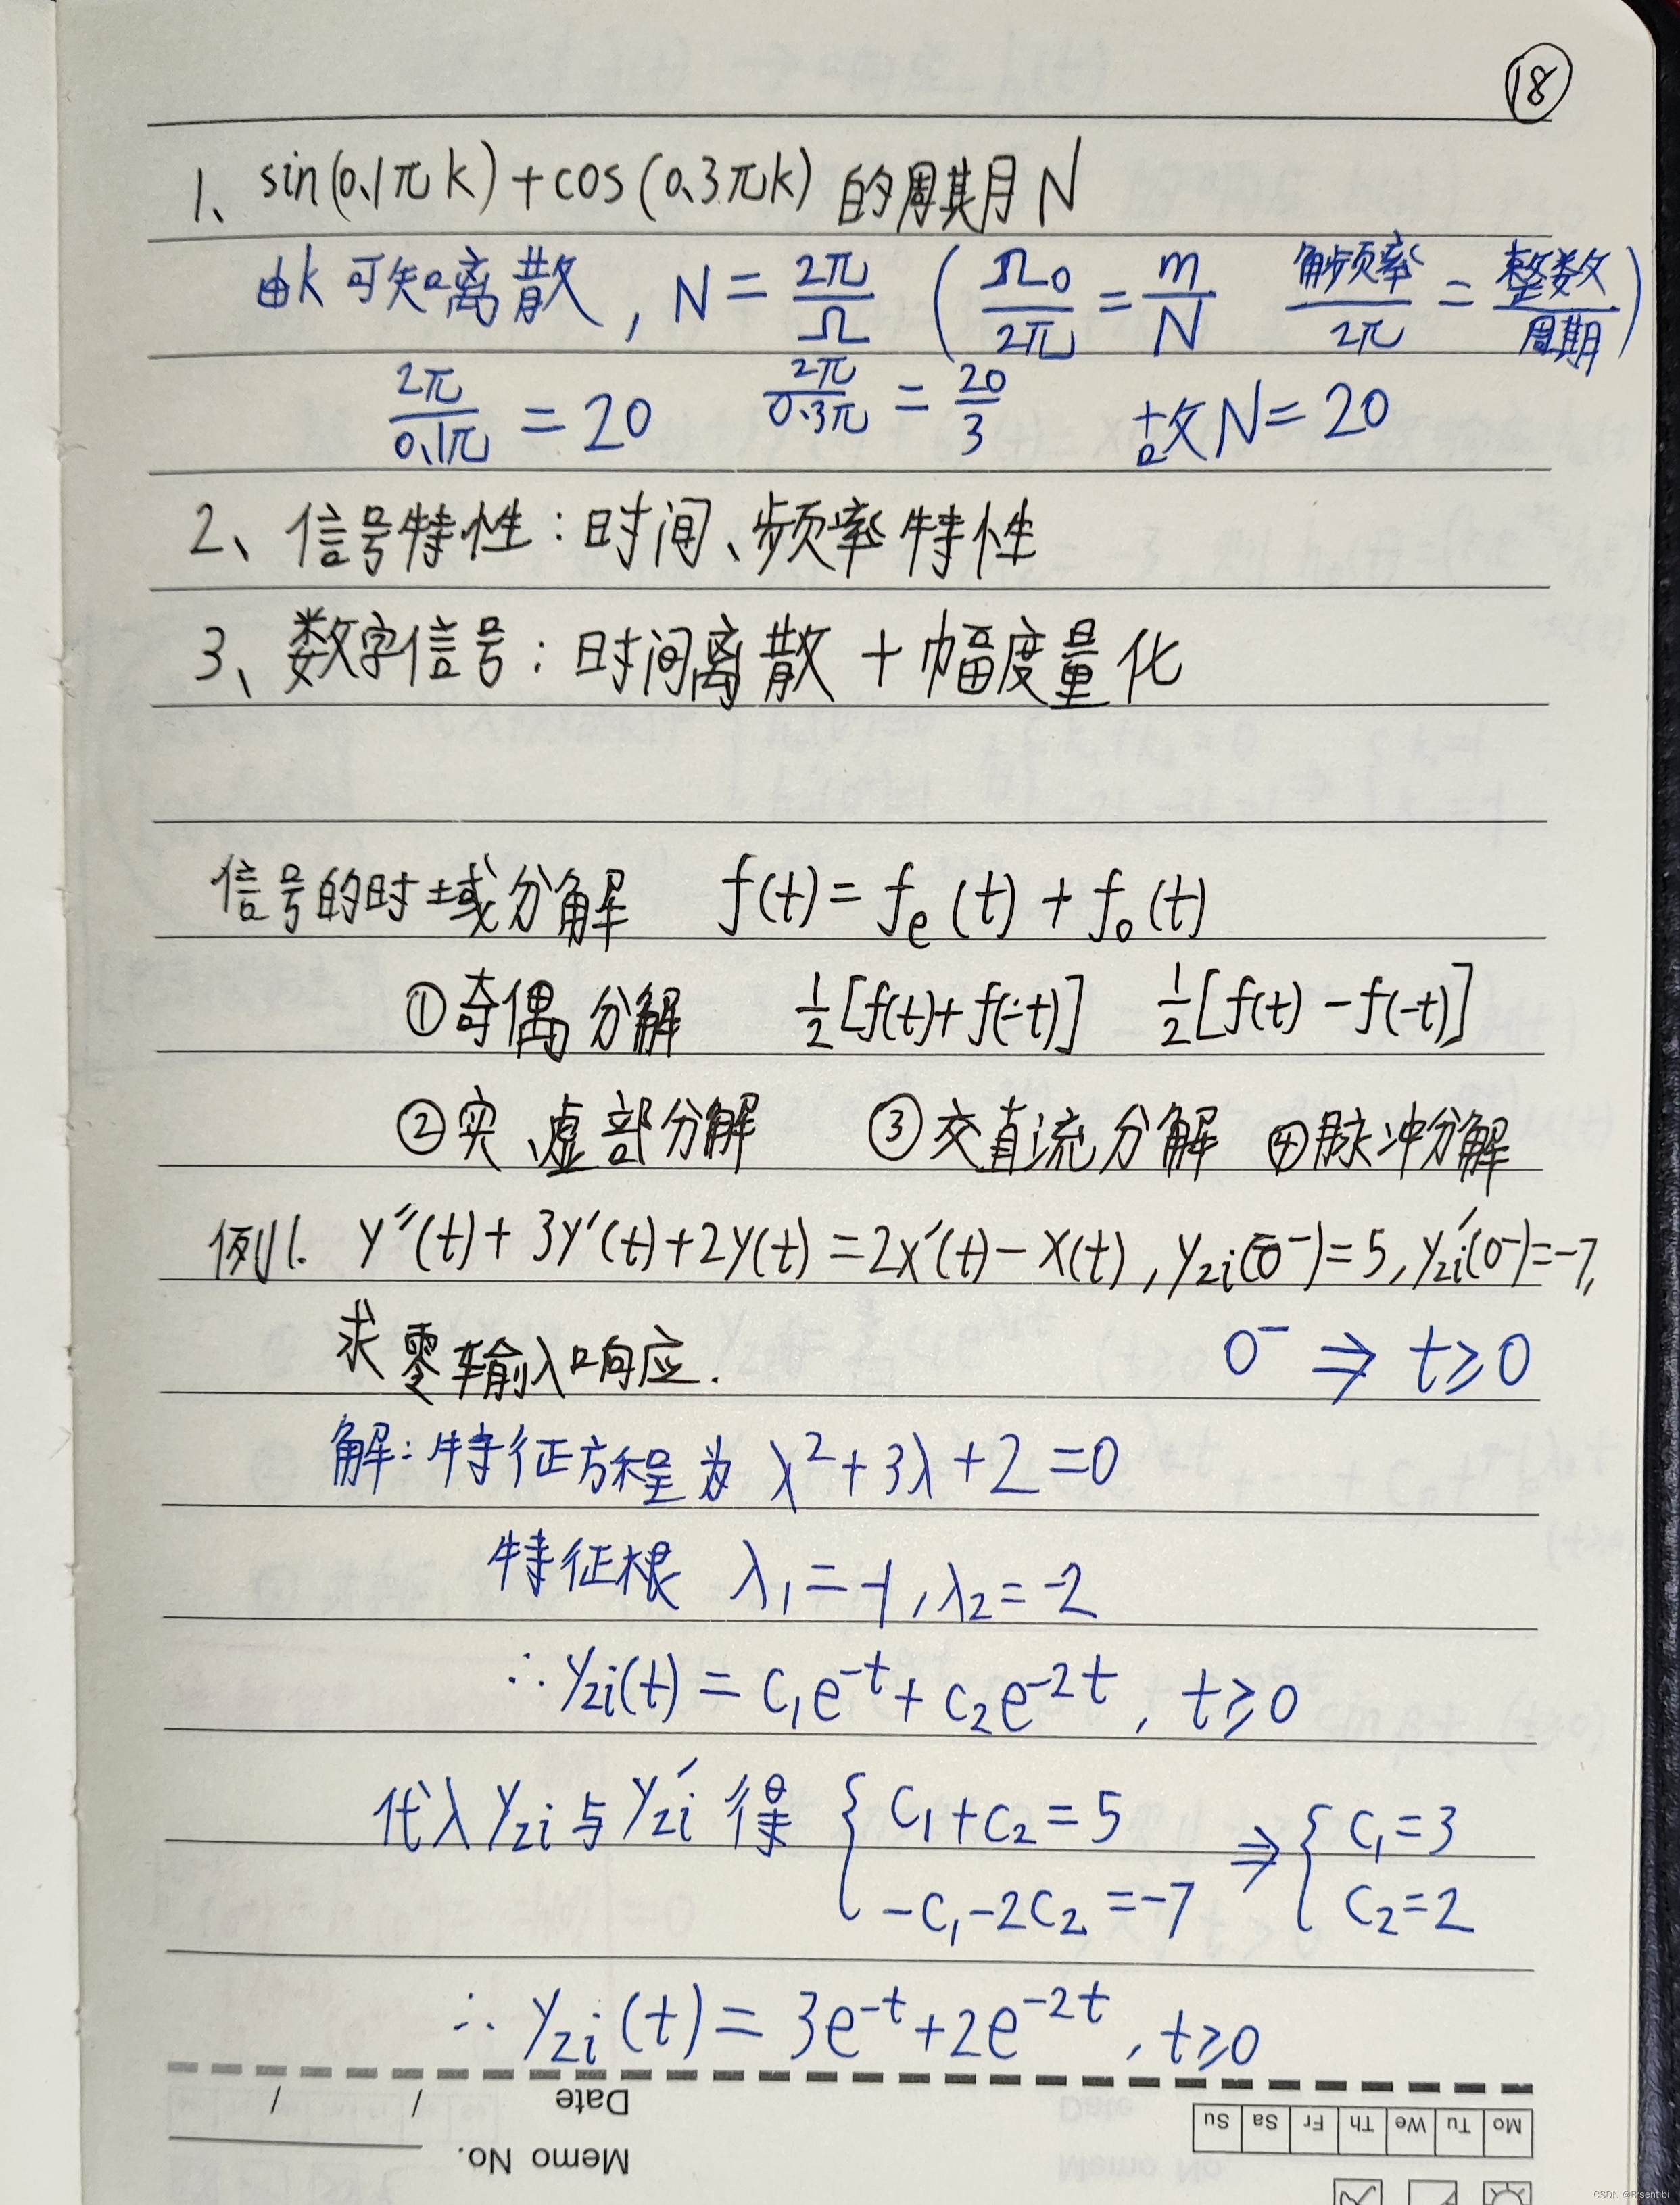 ⑱
1、sin(0.1πk)+cos(0.3πk)的周期N
由k可知离散，N=2π/Ω (Ω0/2π=m/N 角频率/2π=整数/周期)
2π/0.1π=20 2π/0.3π=20/3 故N=20
2、信号特性：时间、频率特性
3、数字信号：时间离散+幅度量化
信号的时域分解 f(t)=fe(t)+fo(t)
①奇偶分解 1/2[f(t)+f(-t)] 1/2[f(t)-f(-t)]
②实、虚部分解 ③交直流分解 ④脉冲分解
例1. y″(t)+3y′(t)+2y(t)=2x′(t)-x(t), yzi(0⁻)=5, yzi′(0⁻)=-7,
求零输入响应. 0⁻⇒t≥0
解：特征方程为 λ²+3λ+2=0
特征根 λ₁=-1, λ₂=-2
∴yzi(t)=c₁e^-t+c₂e^-2t, t≥0
代入yzi与yzi′得 {c₁+c₂=5 ⇒ {c₁=3
-c₁-2c₂=-7 c₂=2
∴yzi(t)=3e^-t+2e^-2t, t≥0
Mo Tu We Th Fr Sa Su
Memo No.
Date / /
CSDN @Brsentibi